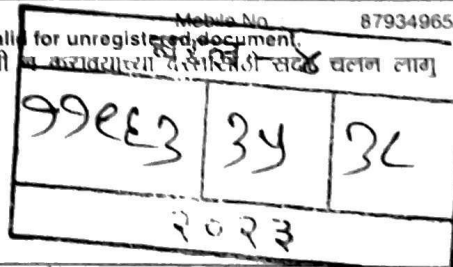 Mobile No. 87934965
for unregistered document.
करावयाच्या दस्तासाठी सदर चलन लागु
११९६३ ३५ ३८
२०२३